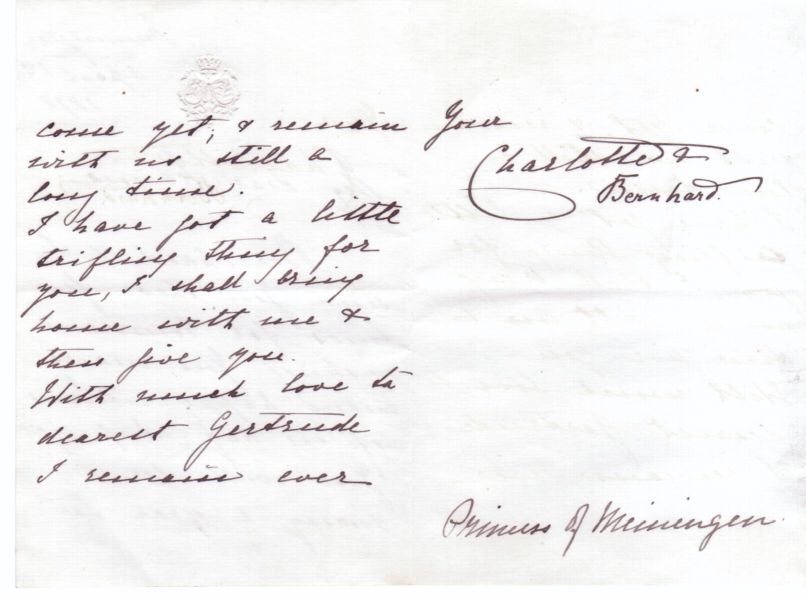 come yet, & remain
with us still a
long time.
I have got a little
trifling thing for
you, I shall bring
home with me &
then give you.
With much love to
dearest Gertrude
I remain ever
Your
Charlotte &
Bernhard.
Princess of Meiningen